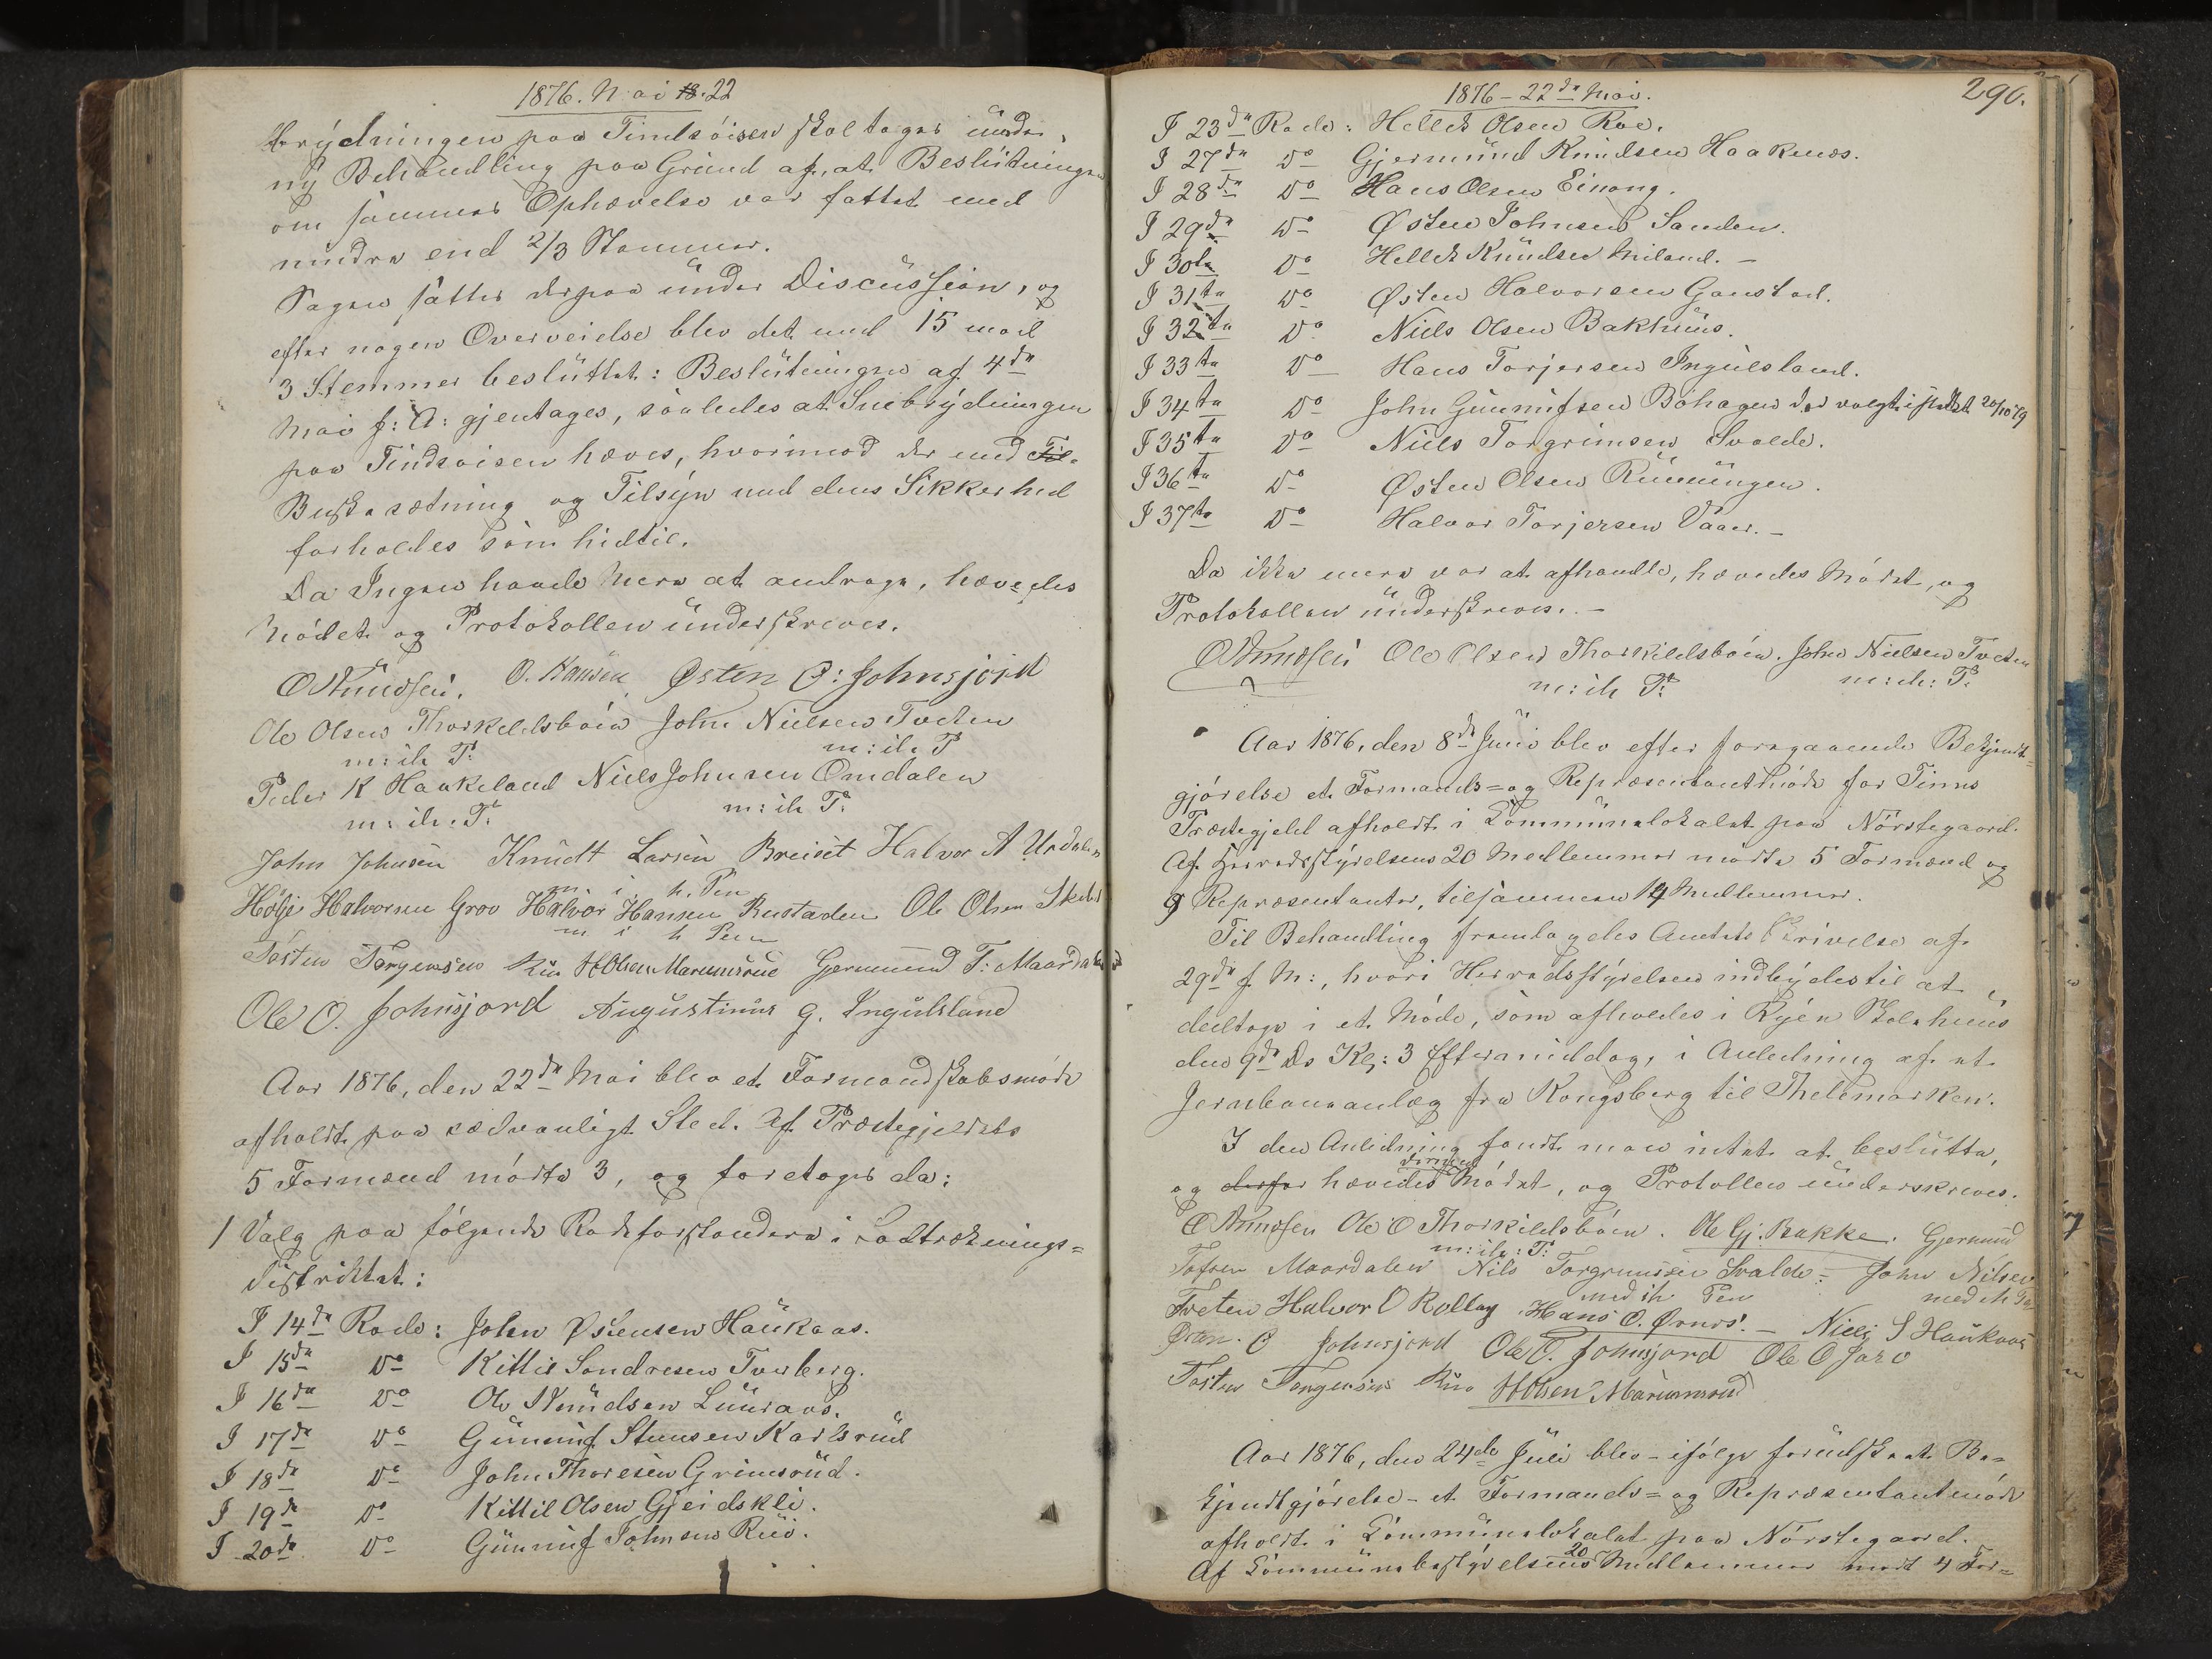 1876. Mai 18. 22
brydningen paa Tindsøisen skal tages under
ny Behandling paa Grund af, at Beslutningen
om sammes Ophævelse var fattet med
mindre end 2/3 Stemmer.
Sagen sattes derpaa under Discussion, og
efter nogen Overveielse blev det med 15 mod
3 Stemmer besluttet: Beslutningen af 4de
Mai f: A: gjentages, saaledes at Snebrydningen
paa Tindsøisen hæves, hvorimod der med Til-
Buskesætning og Tilsyn med dens Sikkerhed
forholdes som hidtil.
Da Ingen havde mere at andrage, hævedes
Mødet og Protokollen underskreves.
O Knudsen. O. Hansen Østen O: Johnsjord
Ole Olsen Thorkildsbøen John Nielsen Tveten
m: ih. P. m: ih. P
Peder K Haakeland Niels Johnsen Omdalen
m: ih. P. m: ih P.
John Johnsen Knudt Larsen Breiset Halvor A Urdalen
m i. h. Pen
Hølje Halvorsen Grov Halvor Hansen Rustaden Ole Olsen
m i h Pen
Tosten Torgersen Rue H Olsen Marumsrue Germund T: Maardalen
Ole O. Johnsjord Augustinus G. Ingulsland
Aar 1876, den 22de Mai blev et Formandskabsmøde
afholdt paa sædvanligt Sted. Af Præstegjeldets
5 Formænd mødte 3, og foretoges da:
1 Valg paa følgende Rodeforstandere i Lodtrækнings=
distriktet:
I 14de Rode: John Østensen Haukaas.
I 15de Do Kittil Sondresen Tverberg.
I 16de Do Ole Knudsen Luraas.
I 17de Do Gunnuf Steensen Karlsrud
I 18de Do John Thoresen Grimsrud.
I 19de Do Kittil Olsen Gjeidskli.
I 20de Do Gunnuf Johnsen Rue.
1876 - 22de Mai.
290.
I 23de Rode: Hellek Olsen Roe.
I 27de Do Gjermund Knudsen Haakenæs.
I 28de Do Hans Olsen Einong.
I 29de Do Østen Johnsen Sanden.
I 30te Do Hellek Knudsen Miland. -
I 31te Do Østen Halvorsen Gaustad.
I 32te Do Niels Olsen Bakhuus.
I 33te Do Hans Torjersen Ingulsland.
I 34te Do John Gunnufsen Bøhagen der valgt istedet 20/10 79
I 35te Do Niels Torgrimsen Svalde.
I 36te Do Østen Olsen Runningen.
I 37te Do Halvor Torjersen Vaaer. -
Da ikke mere var at afhandle, hævedes Mødet, og
Protokollen underskreves. -
O Knudsen Ole Olsen Thorkildsbøen. John Nielsen Tveten
m: ih P: m: ih: P.
Aar 1876, den 8de Juni blev efter foregaaende Bekjendt=
gjørelse et Formands= og Repræsentantmøde for Tinns
Præstegjeld afholdt i Communelokalet paa Nørstegaard.
Af Herredsstyrelsens 20 Medlemmer mødte 5 Formænd og
9 Repræsentanter, tilsammen 14 Medlemmer.
Til Behandling fremlagdes Amtets Skrivelse af
29de f. M:, hvori Herredsstyrelsen indbydes til at
deeltage i et Møde, som afholdes i Ryen Skolehuus
den 9de Ds Kl: 3 Eftermiddag, i Anledning af et
Jernbaneanlæg fra Kongsberg til Thelemarken.
I den Anledning fandt man intet at beslutte,
dermed
og derfor hævedes Mødet, og Protollen underskreves.
O Knudsen Ole O Thorkildsbøen. Ole Gj. Bakke. Germund
m: ih: P:
Tofsen Maardalen Nils Torgrimsen Svalde: John Nilsen
med ih Pen med ih Pen
Tveten Halvor O Rollag Hans O. Ørnes. - Niels S Haukaas
Østen. O Johnsjord Ole O. Johnsjord Ole O Jaro
Tosten Torgersen Rue H Olsen Marumsrud
Aar 1876, den 24de Juli blev - ifølge forudskeet Be=
kjendtgjørelse - et Formands= og Repræsentantmøde
afholdt i Communelokalet paa Nørstegaard.
Af Communebestyrelsens 20 Medlemmer mødt 4 For=